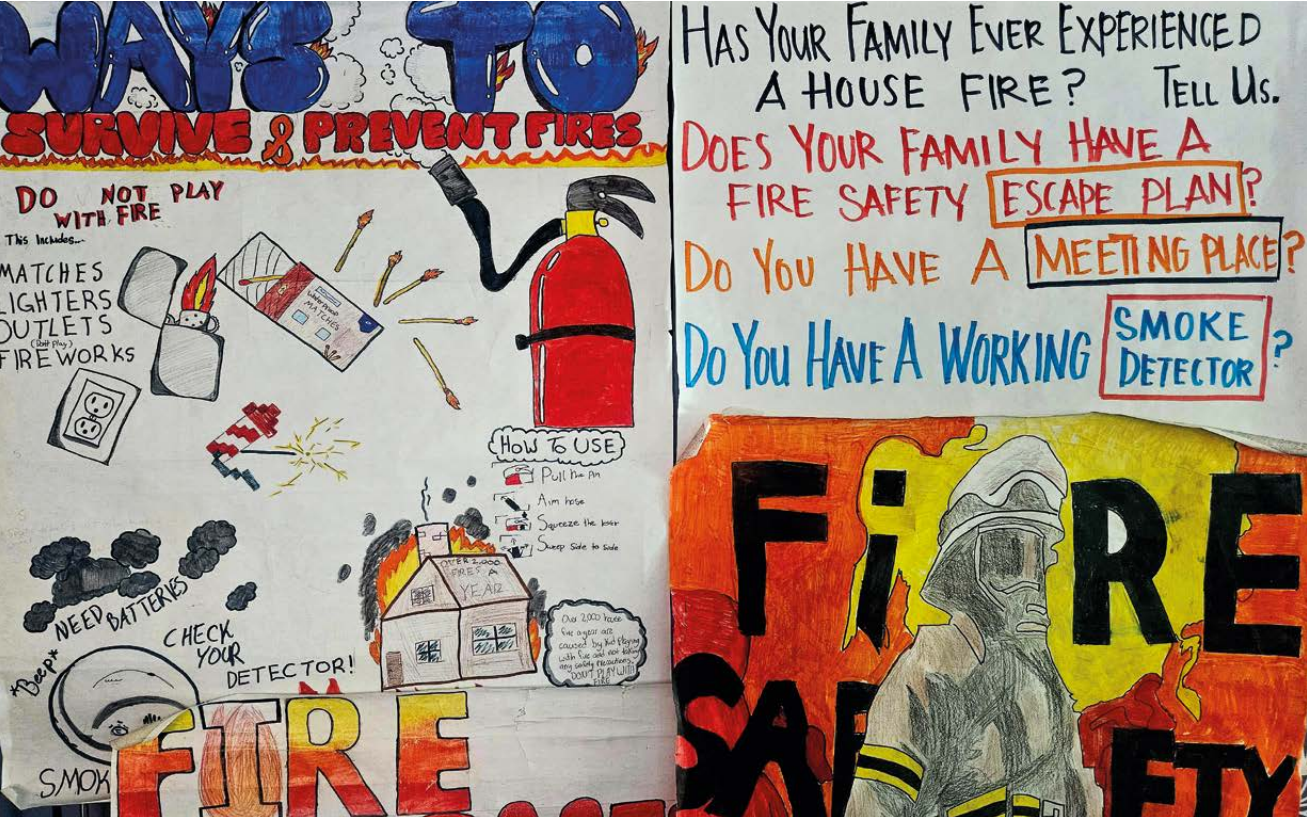 WAYS TO
SURVIVE & PREVENT FIRES
DO NOT PLAY
WITH FIRE
This Includes...
MATCHES
LIGHTERS
OUTLETS
FIREWORKS
MATCHES
HOW TO USE
Pull the pin
Aim hose
Squeeze the lever
Sweep Side to side
OVER 2,000
FIRES A
YEAR
Over 2,000 house
fire a year are
caused by kid playing
with fire and not taking
any safety precautions.
"DON'T PLAY WITH
FIRE
NEED BATTERIES
CHECK
YOUR
DETECTOR!
*Beep*
SMOK
FIRE
HAS YOUR FAMILY EVER EXPERIENCED
A HOUSE FIRE? TELL US.
DOES YOUR FAMILY HAVE A
FIRE SAFETY ESCAPE PLAN?
DO YOU HAVE A MEETING PLACE?
DO YOU HAVE A WORKING SMOKE
DETECTOR?
FiRE
SAFETY